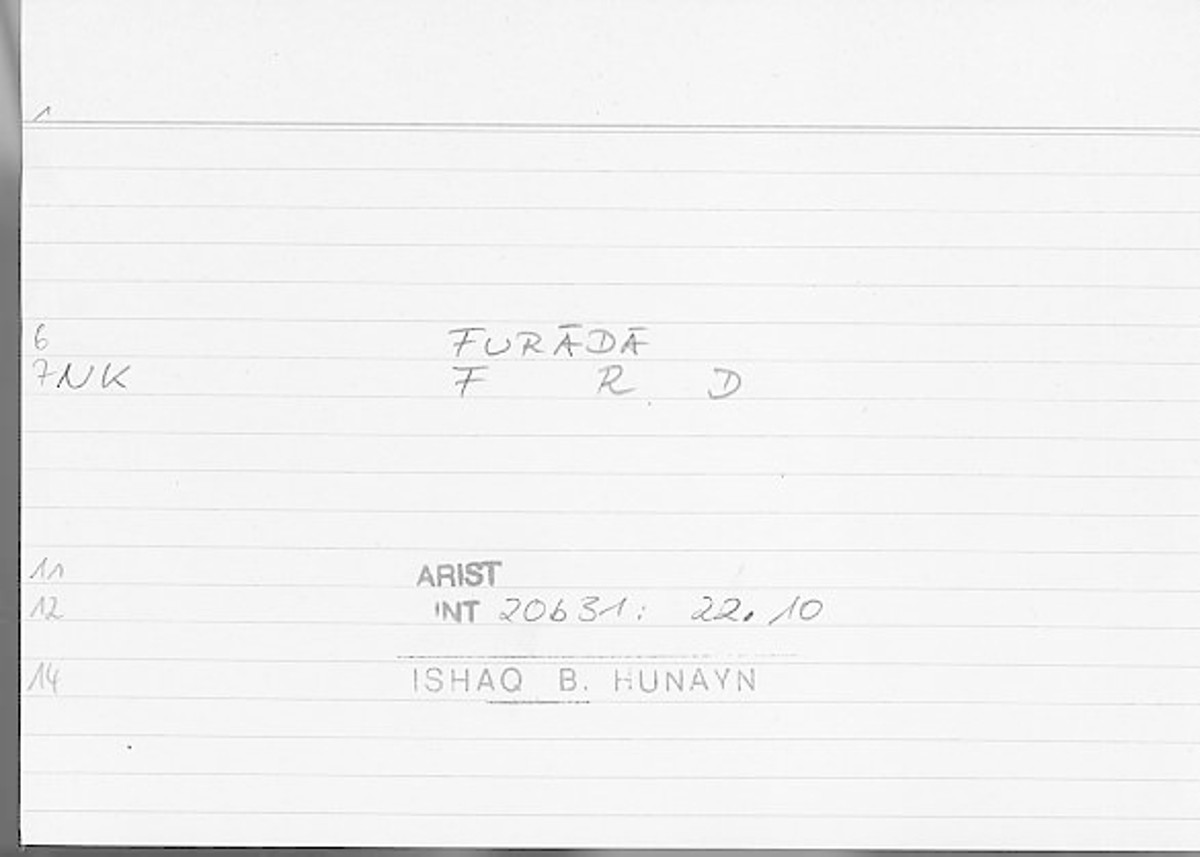 1
6 FURĀDĀ
7 NK F R D
11 ARIST
12 INT 20b31: 22.10
14 ISHAQ B. HUNAYN